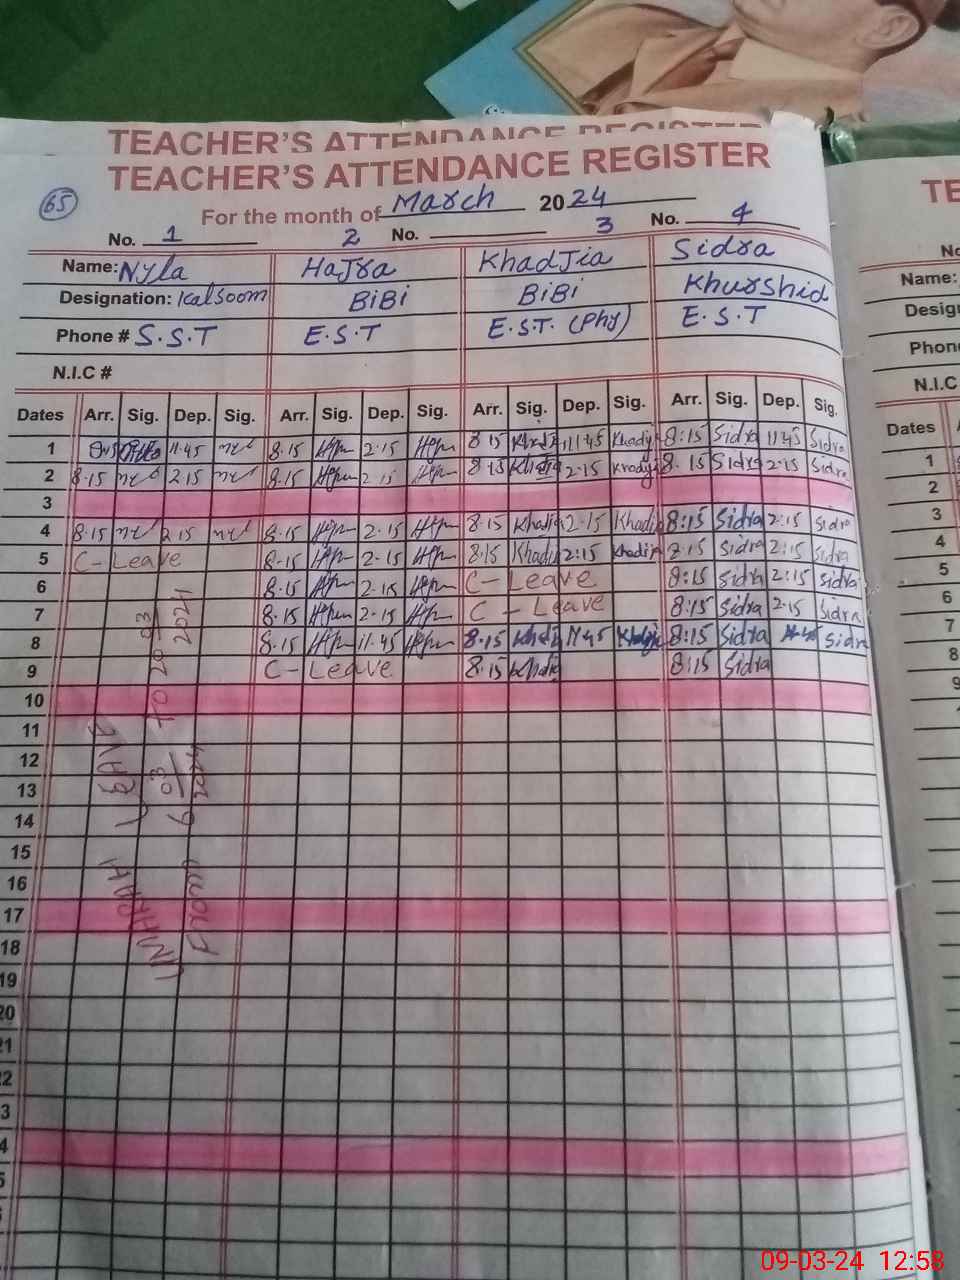 TEACHER'S ATTENDANCE REGISTER
TEACHER'S ATTENDANCE REGISTER
65
For the month of March 2024
No. 1 2 No. 3 No. 4
Name: Nyla Hajra Khadjia Sidra
Designation: Kalsoom BiBi BiBi Khurshid
Phone # S.S.T E.S.T E.S.T. (Phy) E.S.T
N.I.C #
Dates Arr. Sig. Dep. Sig. Arr. Sig. Dep. Sig. Arr. Sig. Dep. Sig. Arr. Sig. Dep. Sig.
1 11.45 8.15 2.15 8.15 11.45 Khadija 8:15 Sidra 11.45 Sidra
2 8.15 2.15 8.15 2.15 8.15 2.15 8.15 Sidra 2.15 Sidra
3
4 8.15 2.15 8.15 2.15 8.15 Khadija 2.15 Khadija 8:15 Sidra 2:15 Sidra
5 C-Leave 8.15 2.15 8.15 Khadija 2:15 Khadija Sidra 2:15 Sidra
6 8.15 2.15 C-Leave 8:15 Sidra 2:15 Sidra
7 8.15 2.15 C-Leave 8:15 Sidra 2.15 Sidra
8 8.15 11.45 8.15 11.45 8:15 Sidra Sidra
9 C-Leave 8.15 8:15 Sidra
10
11
12
13
14
15
16
17
18
19
20
21
22
3
4
5
UMARAH LEAVE
From 6 03 2024 to 20 03 2024
TE
No
Name:
Desig
Phon
N.I.C
Dates
1
2
3
4
5
6
7
8
9
09-03-24 12:58